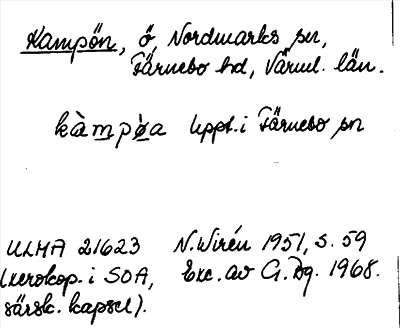 Kampön, ö, Nordmarks sn,
Färnebo hd, Värml. län.
kàmpøa Uppt. i Färnebo sn
ULMA 21623 N. Wirén 1951, s. 59
(xerokop. i SOA, Exc. av G. Bg. 1968.
särsk. kapsel).